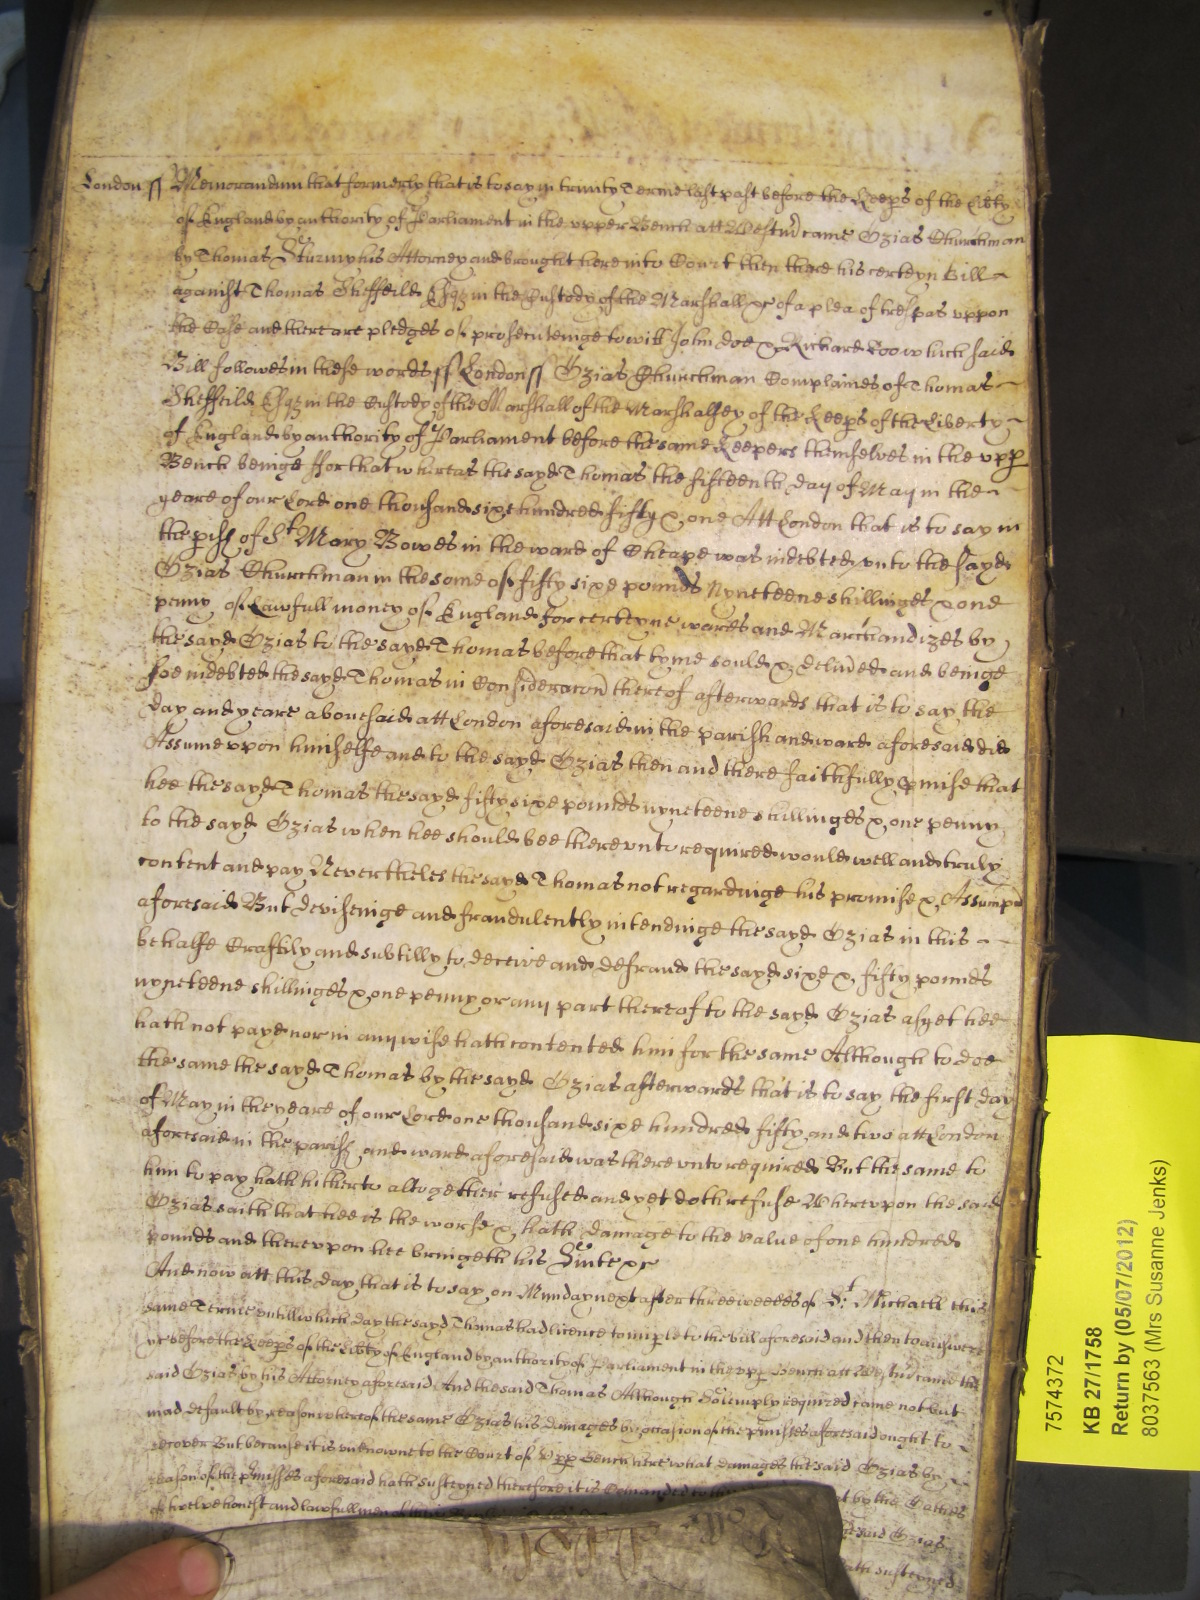 London ss Memorandum that formerly that is to say in trinity Terme last past before the Keeps of the Libty
of England by authority of Parliament in the upper Bench att Westm came Ozias Churchman
by Thomas Sturmy his Attorney and brought here into Court then there his certeyn Bill
against Thomas Sheffeild Esqz in the Custody of the Marshall &c of a plea of trespas uppon
the Case and there are pledges of prosecuteinge to witt John doe & Richard Roo which said
Bill followes in these words ss London ss Ozias Churchman Complaines of Thomas
Sheffeild Esqz in the Custody of the Marshall of the Marshalsey of the Keeps of the Liberty
of England by authority of Parliament before the same Keepers themselves in the upp
Bench beinge ffor that whereas the sayd Thomas the fifteenth day of May in the
yeare of our Lord one thousand sixe hundred fifty & one Att London that is to say in
the pish of St Mary Bowes in the ward of Cheape was indebted unto the sayd
Ozias Churchman in the some of fifty sixe pounds Nyneteene shillinges & one
penny of Lawfull money of England for certeyne wares and Marchandizes by
the sayd Ozias to the sayd Thomas before that tyme sould & delived and beinge
soe indebted the sayd Thomas in Consideracon thereof afterwards that is to say the
day and yeare abovesaid att London aforesaid in the parish and ward aforesaid did
Assume uppon himselfe and to the sayd Ozias then and there faithfully pmise that
hee the sayd Thomas the sayd fifty sixe pounds nyneteene shillinges & one penny
to the sayd Ozias when hee should bee thereunto required would well and truly
content and pay Nevertheles the sayd Thomas not regardinge his promise & Assumpcon
aforesaid But deviseinge and fraudulently intendinge the sayd Ozias in this
behalfe Craftily and subtilly to deceive and defraud the sayd sixe & fifty pounds
nyneteene shillinges & one penny or any part thereof to the sayd Ozias as yet hee
hath not payd nor in any wise hath contented him for the same Although to doe
the same the sayd Thomas by the sayd Ozias afterwards that is to say the first day
of May in the yeare of our Lord one thousand sixe hundred fifty and two att London
aforesaid in the parish and ward aforesaid was thereunto required But the same to
him to pay hath hitherto altogether refused and yet doth refuse Whereupon the said
Ozias saith that hee is the worse & hath damage to the value of one hundred
pounds and thereupon hee bringeth his Suite &c
And now att this day that is to say on Munday next after three weekes of St Michaell this
same Terme untill which day the sayd Thomas had licence to imple to the bill aforesaid and then to answere
&c before the Keeps of the Libty of England by authority of Parliament in the upp Bench att Westm came the
said Ozias by his Attorney aforesaid And the said Thomas Although Solemply required came not but
mad default by reason whereof the same Ozias his damages by occasion of the pmisses aforesaid ought to
recover But because it is unknowne to the Court of Upp Bench here what damages the said Ozias by
reason of the pmisses aforesaid hath susteyned therefore it is Comanded to the t by the Oathes
of twelve honest and lawfull men of
said Ozias
hath susteyned
7574372
KB 27/1758
Return by (05/07/2012)
8037563 (Mrs Susanne Jenks)